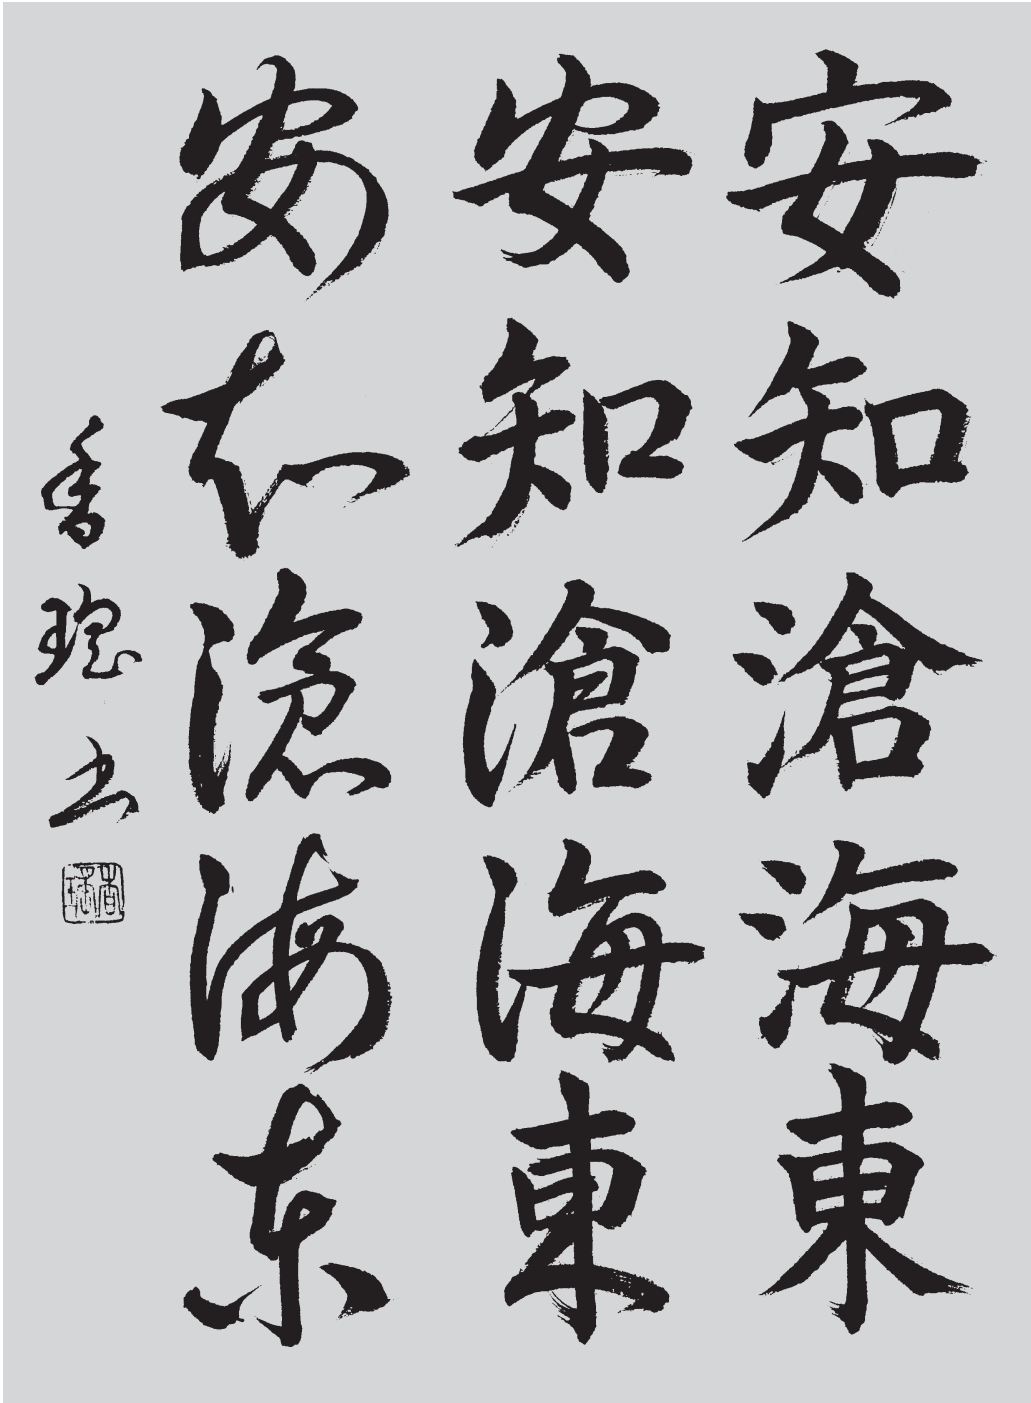 安知滄海東
安知滄海東
安知滄海東
香書